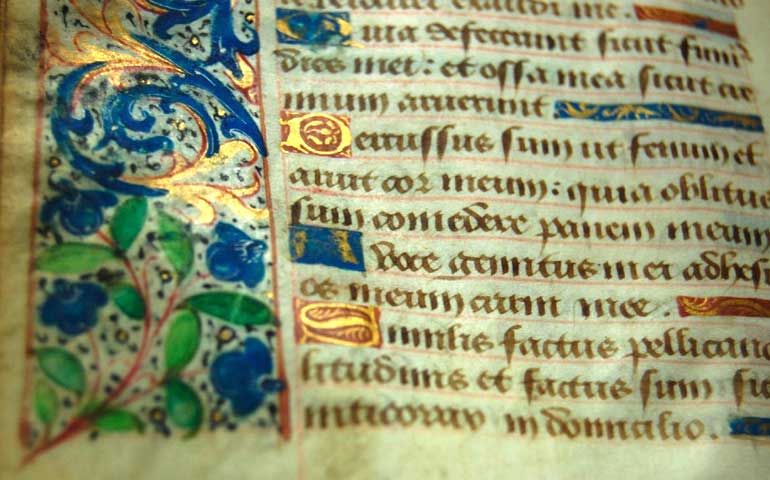 exaudi me.
Quia defecerunt sicut
dies mei: et ossa mea sicut cre
mium aruerunt
Percussus sum ut fenum et
aruit cor meum: quia oblitus
sum comedere panem meum
A Voce gemitus mei adhesi
os meum carni mee.
Similis factus pellicano
litudinis et factus sum sic
nticorax in domicilio.